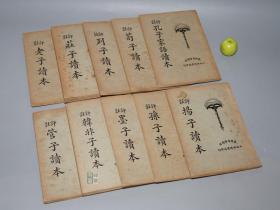 評註
老子讀本
評註
莊子讀本
評註
列子讀本
評註
荀子讀本
評註
孔子家語讀本
評註
管子讀本
評註
韓非子讀本
評註
墨子讀本
評註
孫子讀本
評註
揚子讀本